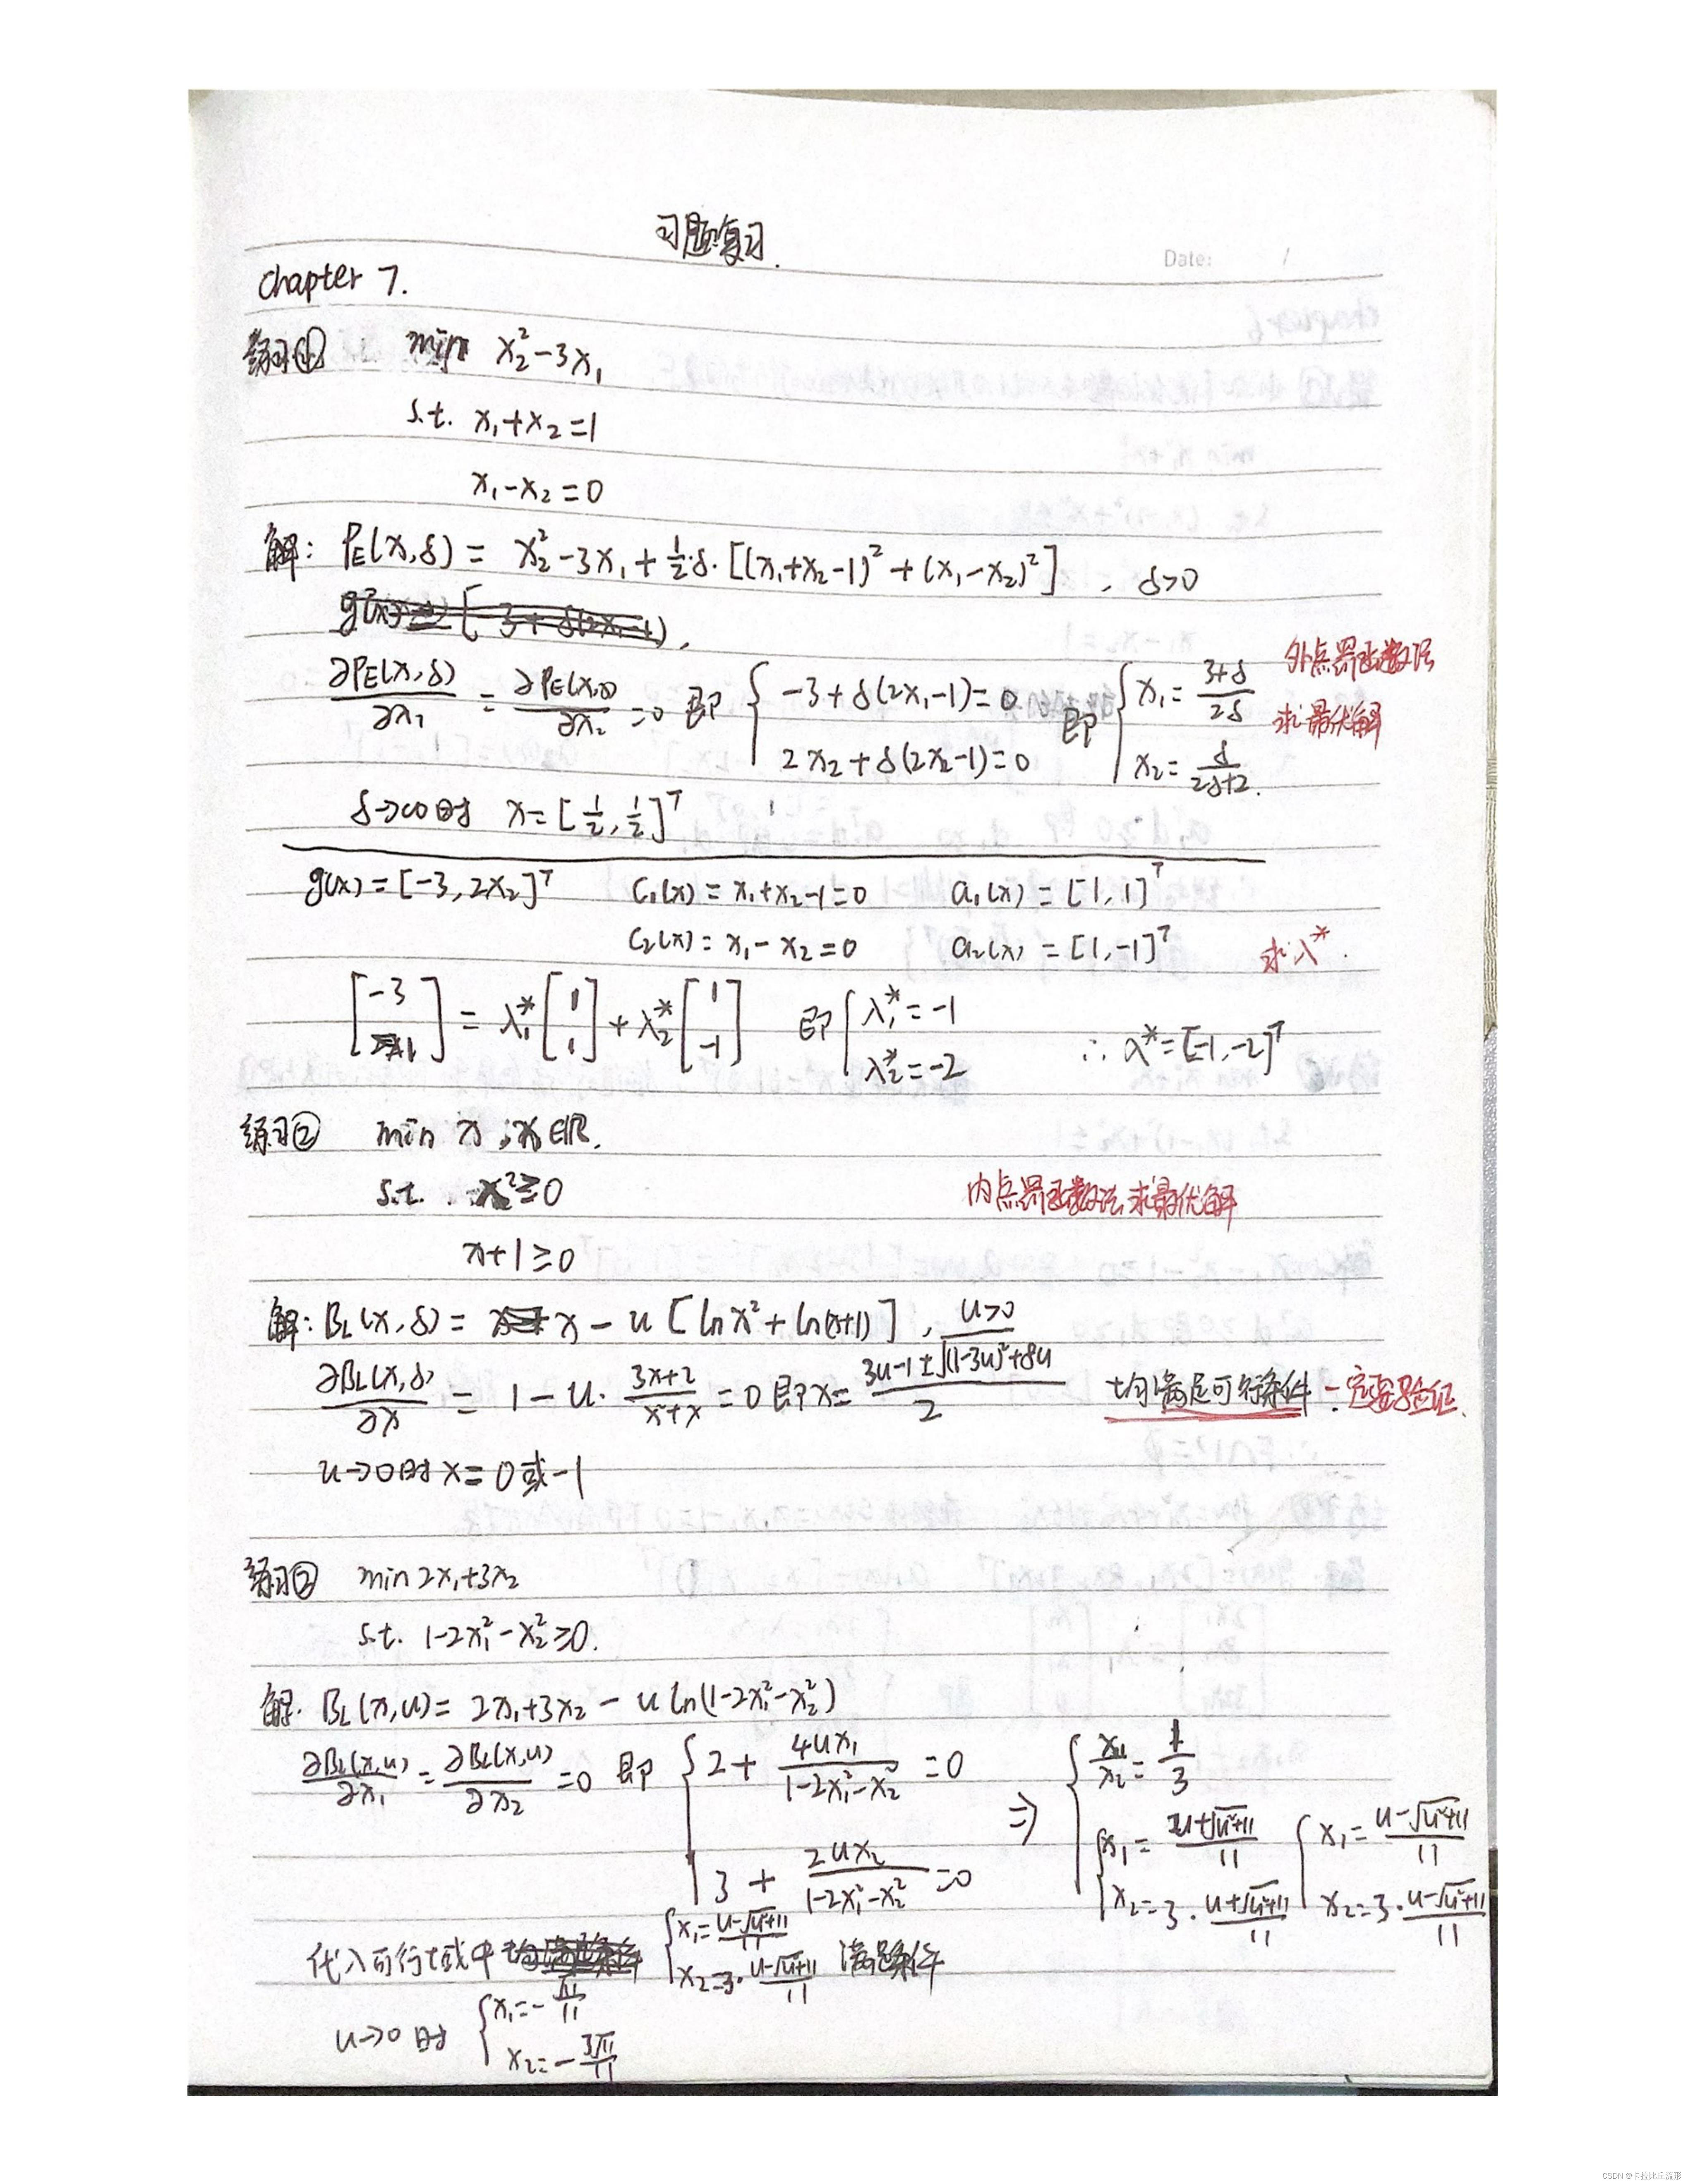 习题复习.
Date: /
chapter 7.
练习① min x₂²-3x₁
s.t. x₁+x₂=1
x₁-x₂=0
解: P_E(x,δ) = x₂²-3x₁+½δ·[(x₁+x₂-1)²+(x₁-x₂)²] , δ>0
∂P_E(x,δ)/∂x₁ = ∂P_E(x,δ)/∂x₂ =0 即 { -3+δ(2x₁-1)=0 2x₂+δ(2x₂-1)=0 即 { x₁=(3+δ)/2δ x₂=δ/(2δ+2). 外点罚函数法 求最优解
δ→∞时 x=[½,½]ᵀ
g(x)=[-3,2x₂]ᵀ C₁(x)=x₁+x₂-1=0 a₁(x)=[1,1]ᵀ
C₂(x)=x₁-x₂=0 a₂(x)=[1,-1]ᵀ 求λ*.
[-3 1] = λ₁*[1 1]+λ₂*[1 -1] 即 { λ₁*=-1 λ₂*=-2 ∴ λ*=[-1,-2]ᵀ
练习② min x ; x∈R.
s.t. x²≥0 内点罚函数法求最优解
x+1≥0
解: B_L(x,δ)= x-u[lnx²+ln(x+1)] , u>0
∂B_L(x,δ)/∂x = 1-u·(3x+2)/(x²+x)=0 即x=(3u-1±√((1-3u)²+8u))/2 均满足可行条件 - 定要验证.
u→0时x=0或-1
练习② min 2x₁+3x₂
s.t. 1-2x₁²-x₂²≥0.
解. B_L(x,u)= 2x₁+3x₂-u ln(1-2x₁²-x₂²)
∂B_L(x,u)/∂x₁ = ∂B_L(x,u)/∂x₂ =0 即 { 2+4ux₁/(1-2x₁²-x₂²)=0 3+2ux₂/(1-2x₁²-x₂²)=0 ⇒ { x₁/x₂=1/3 { x₁=(u+√(u²+11))/11 x₂=3·(u+√(u²+11))/11 { x₁=(u-√(u²+11))/11 x₂=3·(u-√(u²+11))/11
代入可行域中 { x₁=(u-√(u²+11))/11 x₂=3·(u-√(u²+11))/11 满足条件
u→0时 { x₁=-√11/11 x₂=-3√11/11
CSDN @卡拉比丘流形